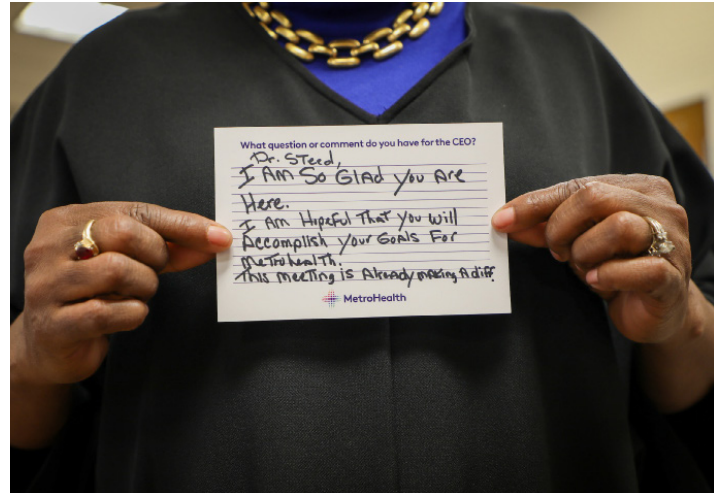 What question or comment do you have for the CEO?
Dr. Steed,
I Am So Glad you Are
Here.
I Am Hopeful That you will
Accomplish your Goals For
Metrohealth.
This meeting is Already making A diff.
MetroHealth